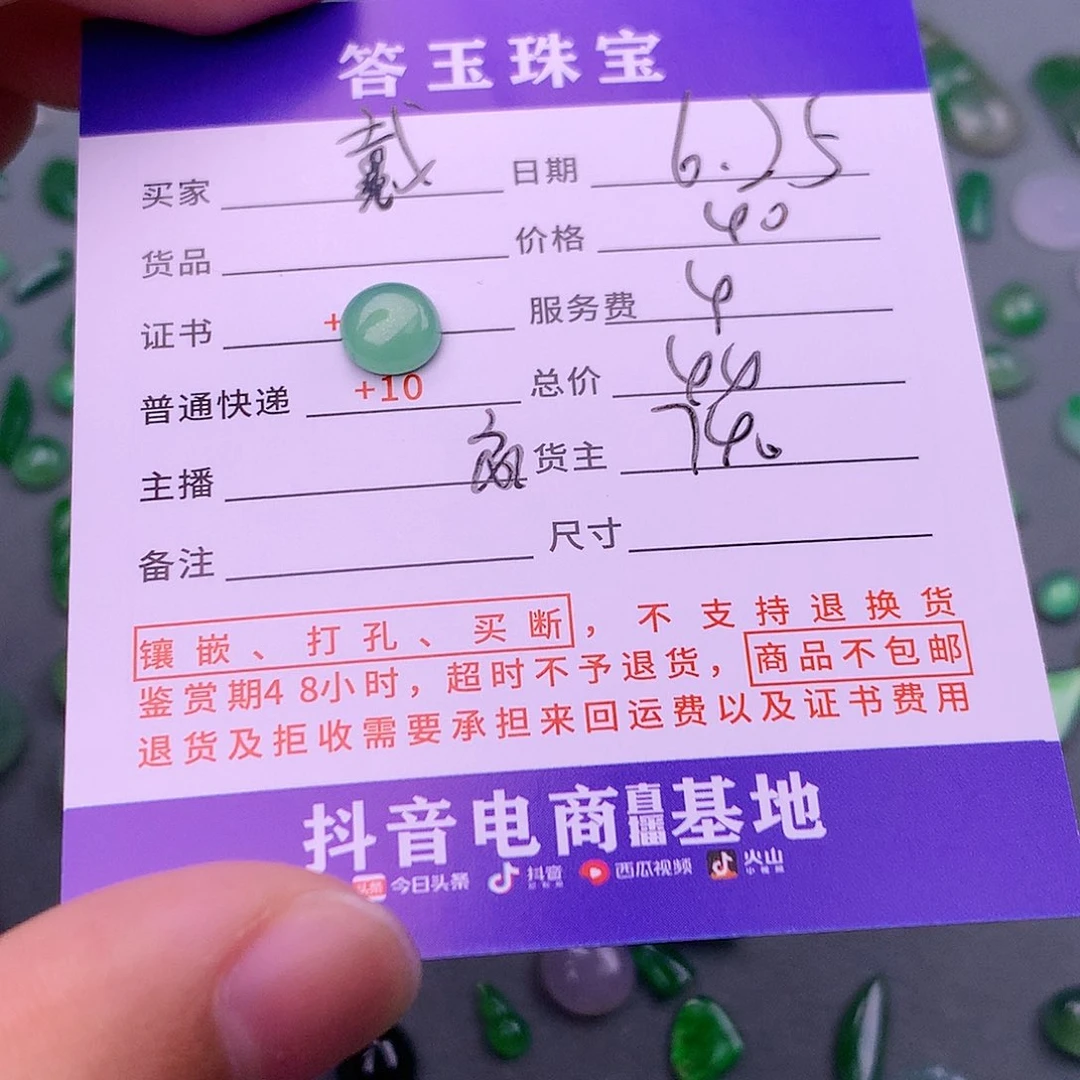 答玉珠宝
买家 戴 日期 6.25
货品 价格 40
证书 + 服务费 4
普通快递 +10 总价 44
主播 货主 740
备注 尺寸
镶嵌、打孔、买断，不支持退换货
鉴赏期48小时，超时不予退货，商品不包邮
退货及拒收需要承担来回运费以及证书费用
抖音电商直播基地
头条 今日头条 抖音 西瓜视频 火山